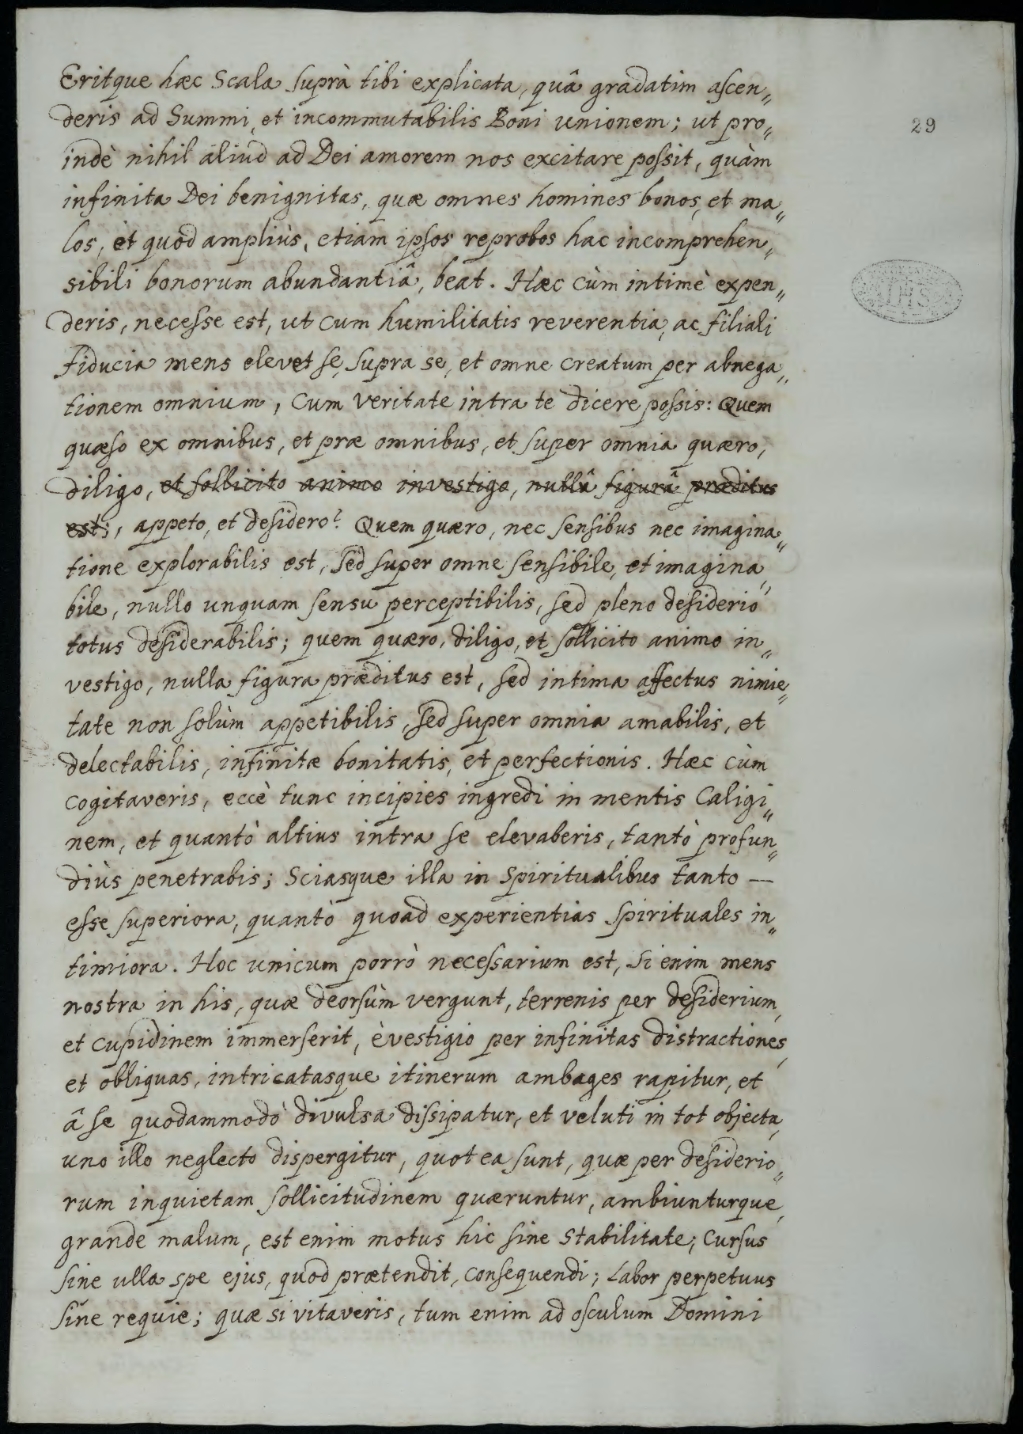 Eritque hæc Scala suprà tibi explicata, quâ gradatim ascen„
deris ad Summi, et incommutabilis Boni unionem; ut pro„
indè nihil aliud ad Dei amorem nos excitare possit, quàm
infinita Dei benignitas, quæ omnes homines bonos, et ma„
los, et quod ampliùs, etiam ipsos reprobos hac incomprehen„
sibili bonorum abundantiâ, beat. Hæc cùm intimè expen„
deris, necesse est, ut cum humilitatis reverentia, ac filiali
fiducia mens elevet se, supra se, et omne creatum per abnega„
tionem omnium, cum veritate intra te dicere possis: Quem
quæso ex omnibus, et præ omnibus, et super omnia quæro,
diligo, et sollicito animo investigo, nullâ figurâ præditus
est;, appeto, et desidero? Quem quæro, nec sensibus nec imagina„
tione explorabilis est, sed super omne sensibile, et imagina„
bile, nullo unquam sensu perceptibilis, sed pleno desiderio
totus desiderabilis; quem quæro, diligo, et sollicito animo in„
vestigo, nulla figura præditus est, sed intima affectus nimie„
tate non solùm appetibilis, sed super omnia amabilis, et
delectabilis, infinitæ bonitatis, et perfectionis. Hæc cùm
cogitaveris, eccè tunc incipies ingredi in mentis Caligi„
nem, et quantò altius intra se elevaberis, tantò profun„
diùs penetrabis; sciasque illa in spiritualibus tanto —
esse superiora, quantò quoad experientias spirituales in„
timiora. Hoc unicum porrò necessarium est, si enim mens
nostra in his, quæ deorsùm vergunt, terrenis per desiderium,
et cupidinem immerserit, èvestigio per infinitas distractiones,
et obliquas, intricatasque itinerum ambages rapitur, et
â se quodammodò divulsa dissipatur, et veluti in tot objecta,
uno illo neglecto dispergitur, quot ea sunt, quæ per desiderio„
rum inquietam sollicitudinem quæruntur, ambiunturque,
grande malum, est enim motus hic sine stabilitate; cursus
sine ulla spe ejus, quod prætendit, consequendi; labor perpetuus
sine requie; quæ si vitaveris, tum enim ad osculum Domini
29
IHS